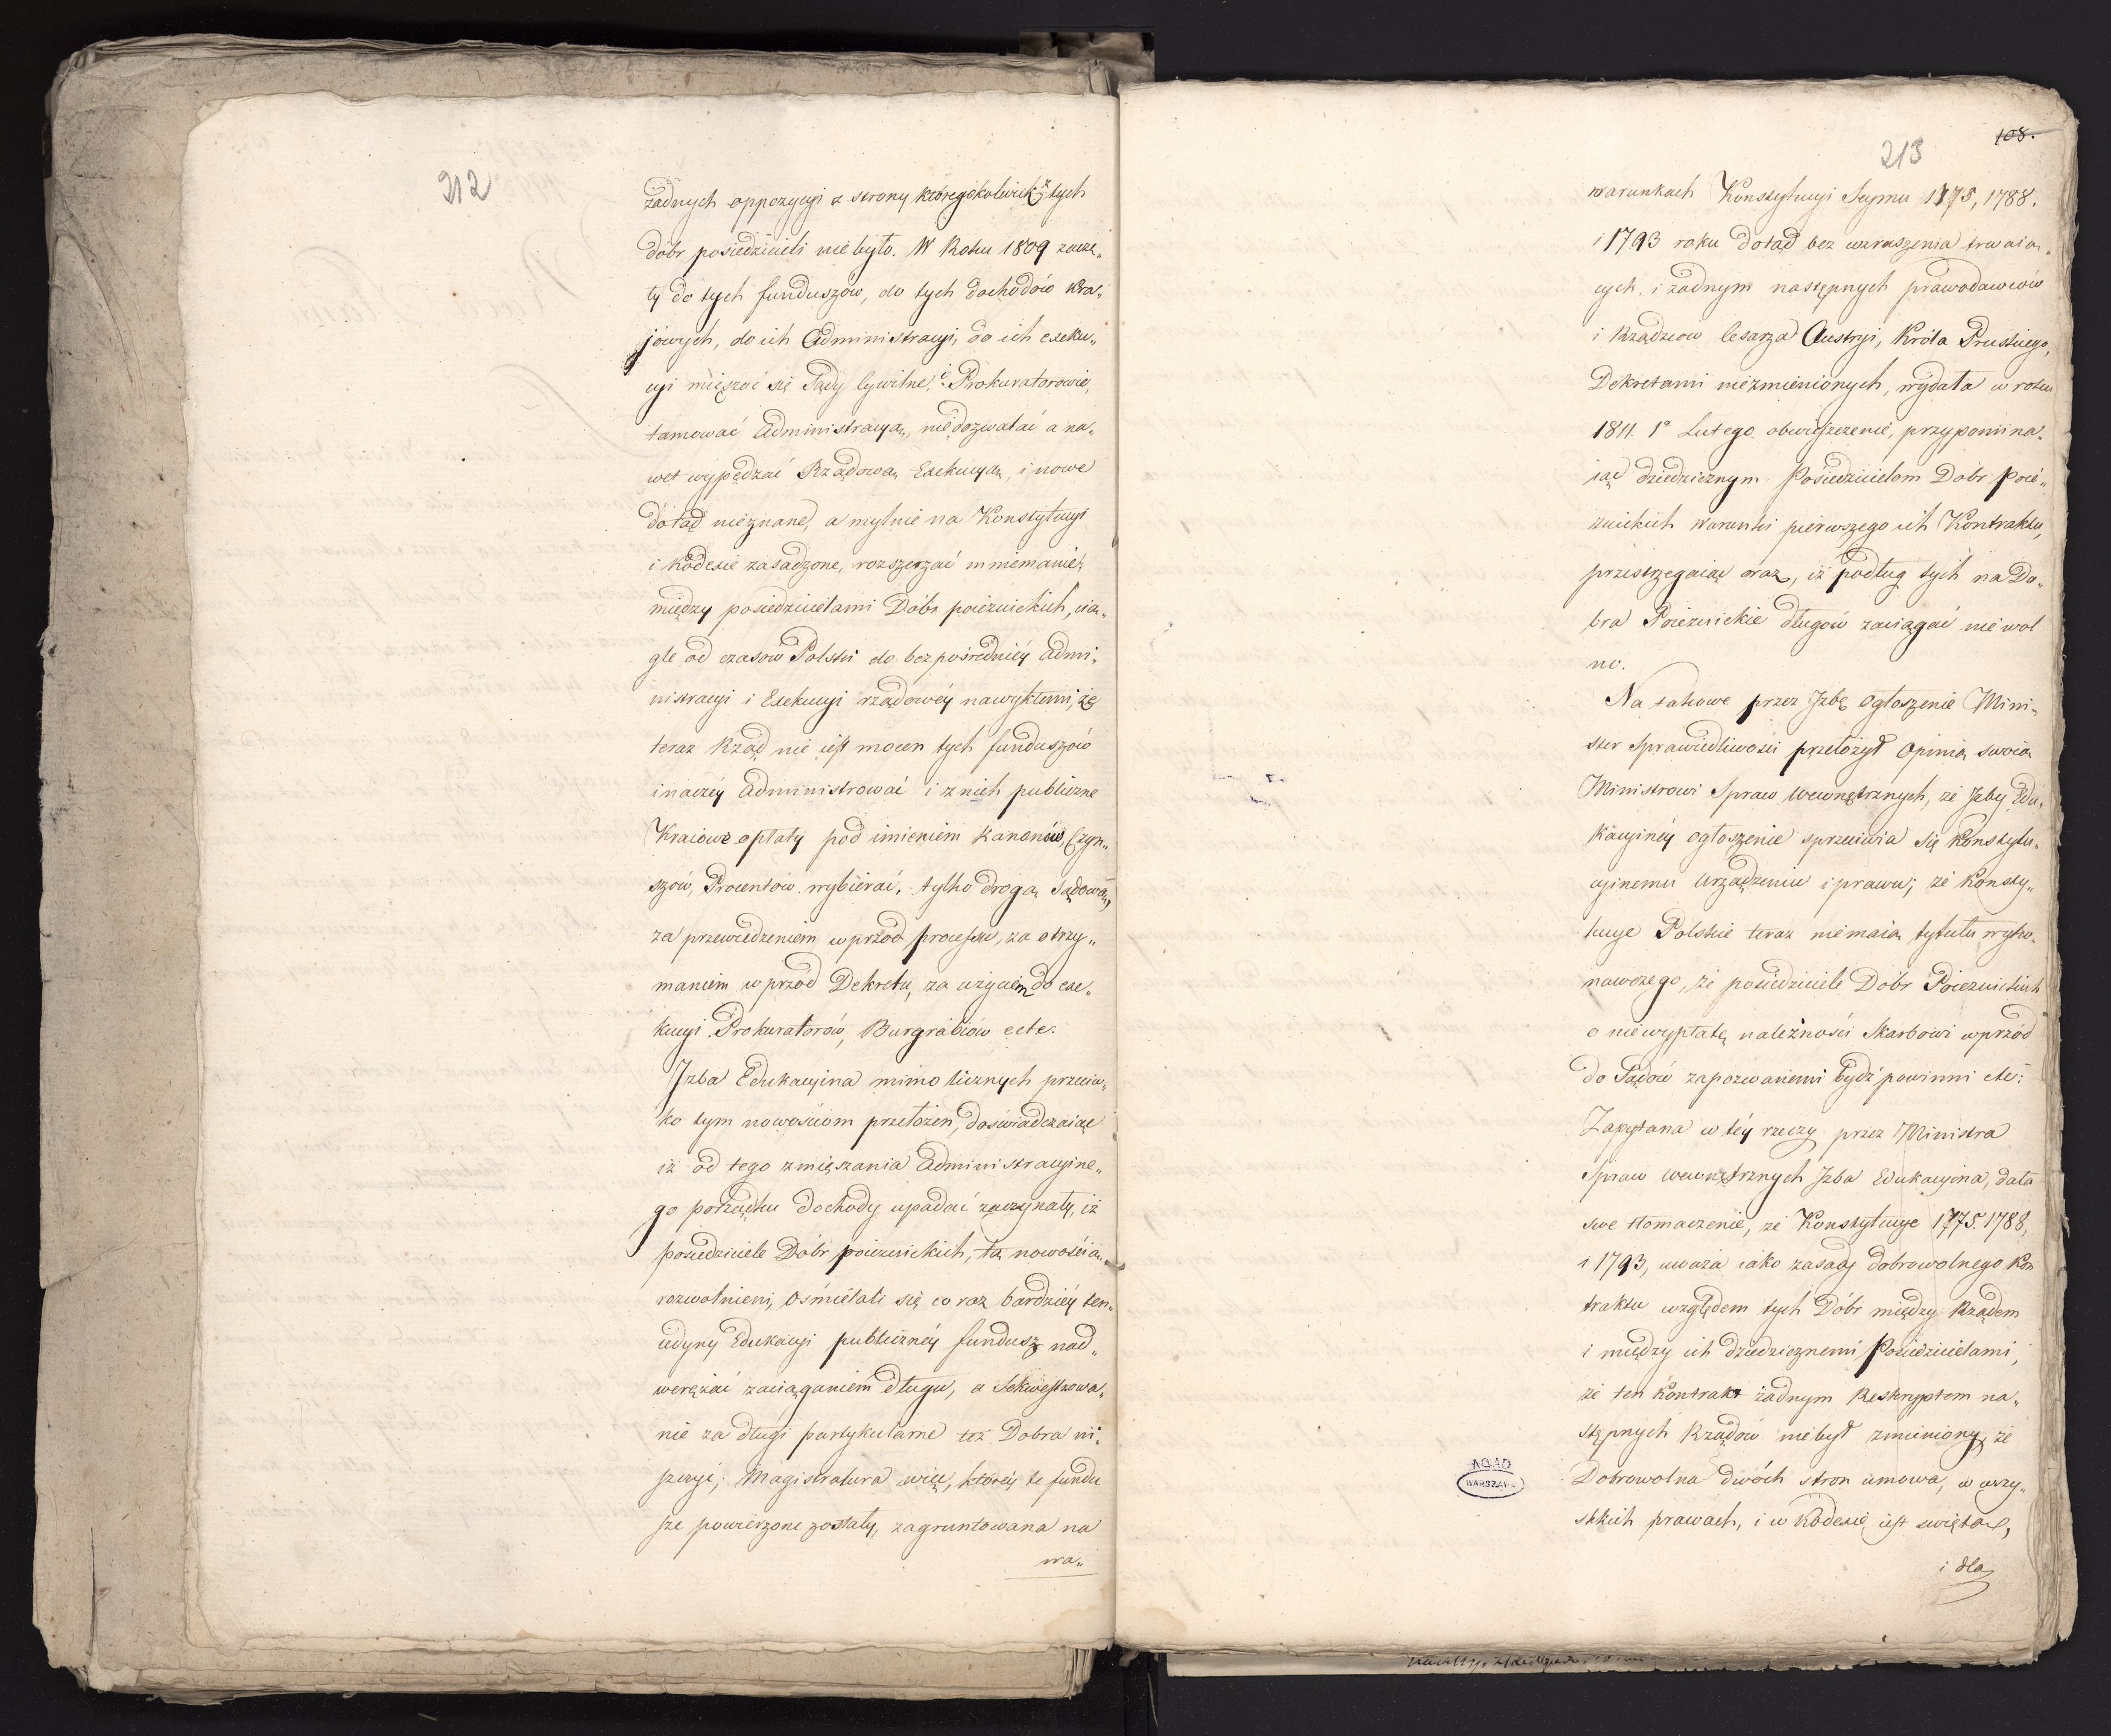 212
żadnych oppozycyi z strony któregokolwiek z tych
dóbr posiedzicieli nie było. W Roku 1809 zaczę„
ły do tych funduszów, do tych dochodów kra„
jowych, do ich Administracyi, do ich exeku„
cyi mięszać się Sądy Cywilne, i Prokuratorowie,
tamować Administracyą, niedozwalać a na„
wet wypędzać Rządową Exekucyą, i nowe
dotąd nieznane, a mylnie na Konstytucyi
i Kodexie zasadzone, rozszerzać mniemanie:
między posiedzicielami Dóbr pojezuickich, cią„
gle od czasów Polski do bezpośredniéy admi„
nistracyi i Exekucyi rządowéy nawykłemi, że
teraz Rząd nie iest mocen tych funduszów
inaczéy Administrować i z nich publiczne
Kraiowe opłaty pod imieniem Kanonów, Czyn„
szów, Procentów wybierać, tylko drogą Sądową,
za przewiedzeniem wprzód processu, za otrzy„
maniem wprzód Dekretu, za użyciem do exe„
kucyi Prokuratorów, Burgrabiów etc:
Izba Edukacyina mimo licznych przeciw„
ko tym nowościom przełożeń, doświadczaiąc
iż od tego zmięszania Administracyine„
go porządku dochody upadać zaczynały, iż
posiedziciele Dóbr pojezuickich, tą nowością
rozwolnieni, ośmielali się co raz bardziéy ten„
iedyny Edukacyi publicznéy fundusz nad„
werężać zaciąganiem długu, a Sekwestrowa„
nie za długi partykularne też Dobra ni„
szczyć; Magistratura więc, któréy te fundu
sze powierzone zostały, zagruntowana na
wa„
108.
213
warunkach Konstytucyi Seymu 1775, 1788.
i 1793 roku dotąd bez wzruszenia trwaią„
cych, i żadnym następnych prawodawców
i Rządzców Cesarza Austryi, Króla Pruskiego,
Dekretami niezmienionych, wydała w roku
1811. 1º Lutego obwieszczenie, przypomina„
iąc dziedzicznym Posiedzicielom Dóbr Poie„
zuickich warunki pierwszego ich Kontraktu,
przestrzegaiąc oraz, iż podług tych na Do„
bra Poiezuickie długów zaciągać nie wol
no.
Na takowe przez Izbę ogłoszenie Mini„
ster Sprawiedliwości przełożył Opinią swoią
Ministrowi Spraw Wewnętrznych, że Izby Edu„
kacyinéy ogłoszenie sprzeciwia się Konstytu„
cyinemu Urządzeniu i prawu; że Konsty„
tucye Polskie teraz niemaią tytułu wyko„
nawczego, że posiedziciele Dóbr Poiezuickich
o niewypłatę należności Skarbowi wprzód
do Sądów zapozwanemi bydź powinni etc:
Zapytana w téy rzeczy przez Ministra
Spraw Wewnętrznych Izba Edukacyina, dała
swe tłomaczenie, że Konstytucye 1775. 1788,
i 1793, uważa iako zasadę dobrowolnego Kon
traktu względem tych Dóbr między Rządem
i między ich dziedzicznemi Posiedzicielami,
że ten Kontrakt żadnym Reskryptem na„
stępnych Rządów niebył zmieniony, że
Dobrowolna dwóch stron umowa, w wszy„
stkich prawach, i w Kodexie iest świętą,
i dla
AGAD
WARSZAWA